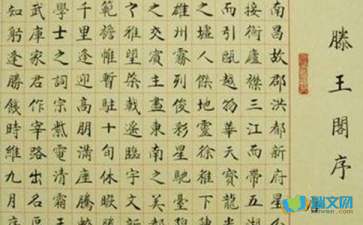 滕王閣序
南昌故郡洪都新府星分
接衡廬襟三江而帶五湖
而引甌越物華天寶龍光
之墟人傑地靈徐孺下
雄州霧列俊彩星馳臺
之交賓主盡東南之美都
之雅望棨戟遙臨宇文新
範襜帷暫駐十旬休暇
千里逢迎高朋滿座騰蛟
學士之詞宗紫電清霜王
武庫家君作宰路出名區
知躬逢勝餞時維九月序
瑞文网